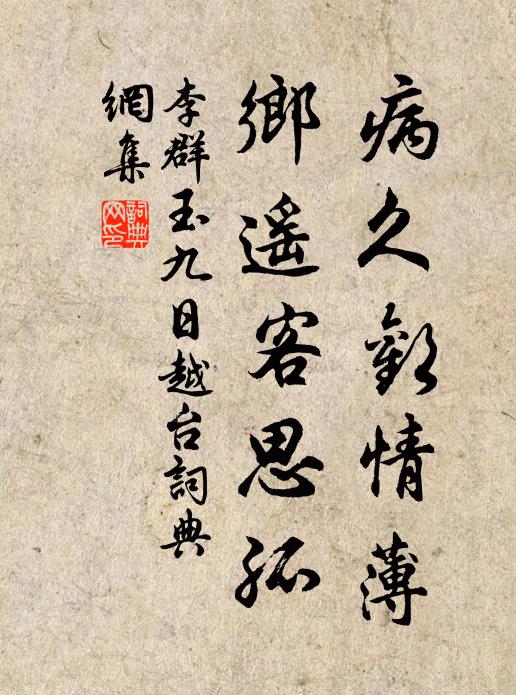 病久歡情薄
鄉遥客思孤
李群玉九日越台詞典
網集
詞典網印